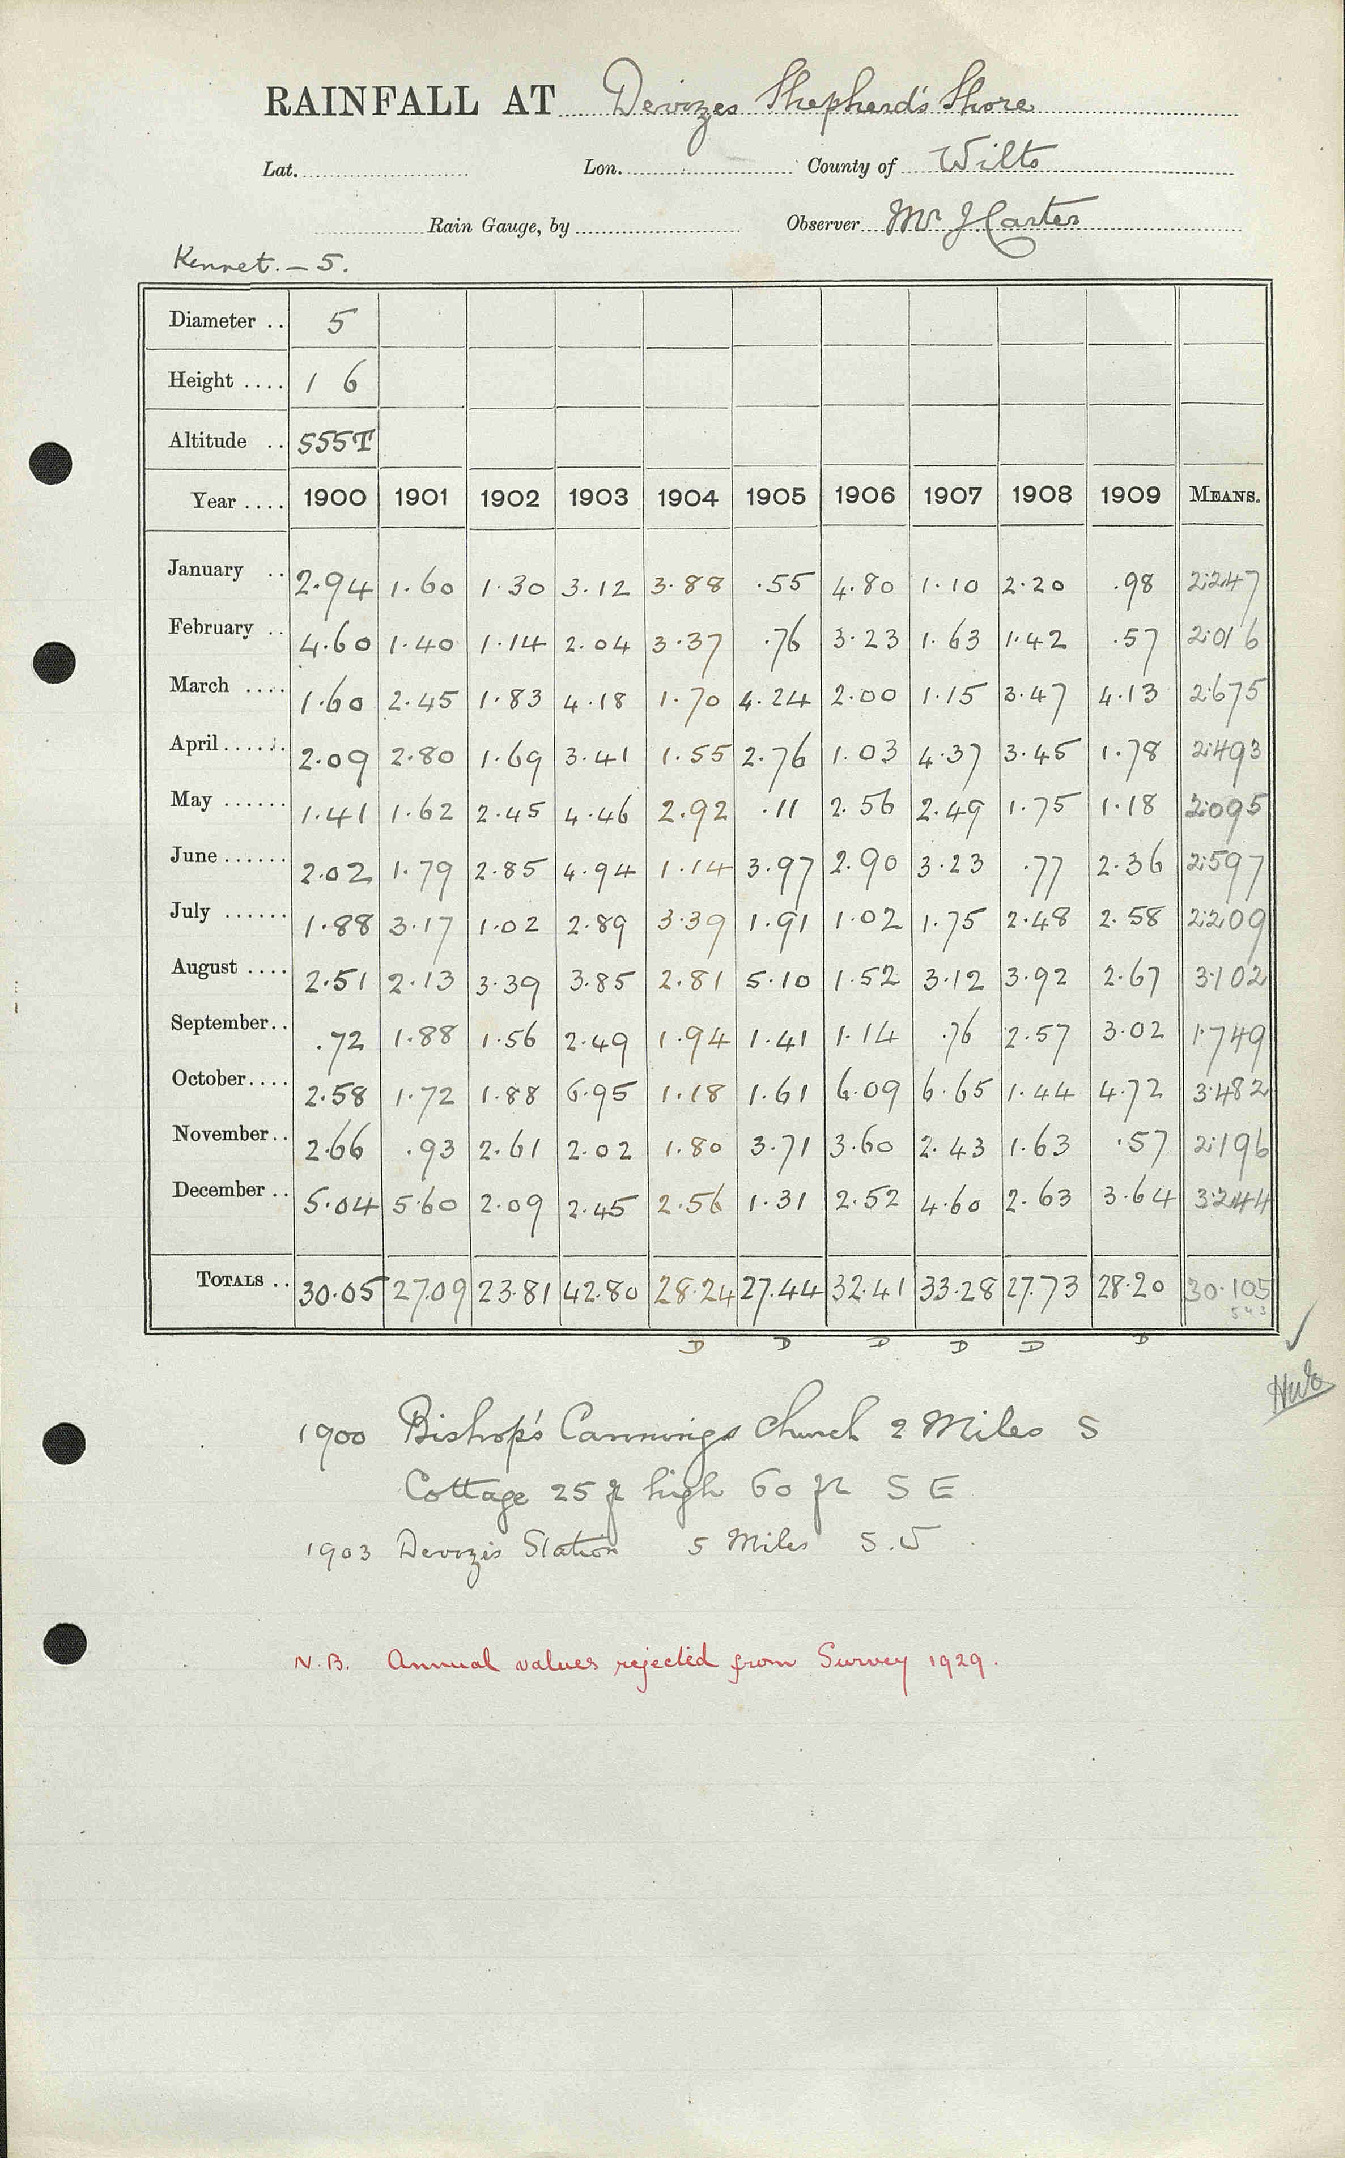 RAINFALL AT Devizes Shepherd's Shore
Lat. Lon. County of Wilts
Rain Gauge, by Observer Mr J Carter
Kennet. – 5.
Diameter .. 5
Height .... 1 6
Altitude .. 555T
Year .... 1900 1901 1902 1903 1904 1905 1906 1907 1908 1909 MEANS.
January .. 2.94 1.60 1.30 3.12 3.88 .55 4.80 1.10 2.20 .98 2.247
February .. 4.60 1.40 1.14 2.04 3.37 .76 3.23 1.63 1.42 .57 2.016
March .... 1.60 2.45 1.83 4.18 1.70 4.24 2.00 1.15 3.47 4.13 2.675
April ..... 2.09 2.80 1.69 3.41 1.55 2.76 1.03 4.37 3.45 1.78 2.493
May ...... 1.41 1.62 2.45 4.46 2.92 .11 2.56 2.49 1.75 1.18 2.095
June ...... 2.02 1.79 2.85 4.94 1.14 3.97 2.90 3.23 .77 2.36 2.597
July ...... 1.88 3.17 1.02 2.89 3.39 1.91 1.02 1.75 2.48 2.58 2.209
August .... 2.51 2.13 3.39 3.85 2.81 5.10 1.52 3.12 3.92 2.67 3.102
September.. .72 1.88 1.56 2.49 1.94 1.41 1.14 .76 2.57 3.02 1.749
October.... 2.58 1.72 1.88 6.95 1.18 1.61 6.09 6.65 1.44 4.72 3.482
November.. 2.66 .93 2.61 2.02 1.80 3.71 3.60 2.43 1.63 .57 2.196
December .. 5.04 5.60 2.09 2.45 2.56 1.31 2.52 4.60 2.63 3.64 3.244
TOTALS .. 30.05 27.09 23.81 42.80 28.24 27.44 32.41 33.28 27.73 28.20 30.105
543
D D D D D D
1900 Bishop's Cannings Church 2 Miles S
Cottage 25 ft high 60 ft S E
1903 Devizes Station 5 Miles S.W
N.B. Annual values rejected from Survey 1929.